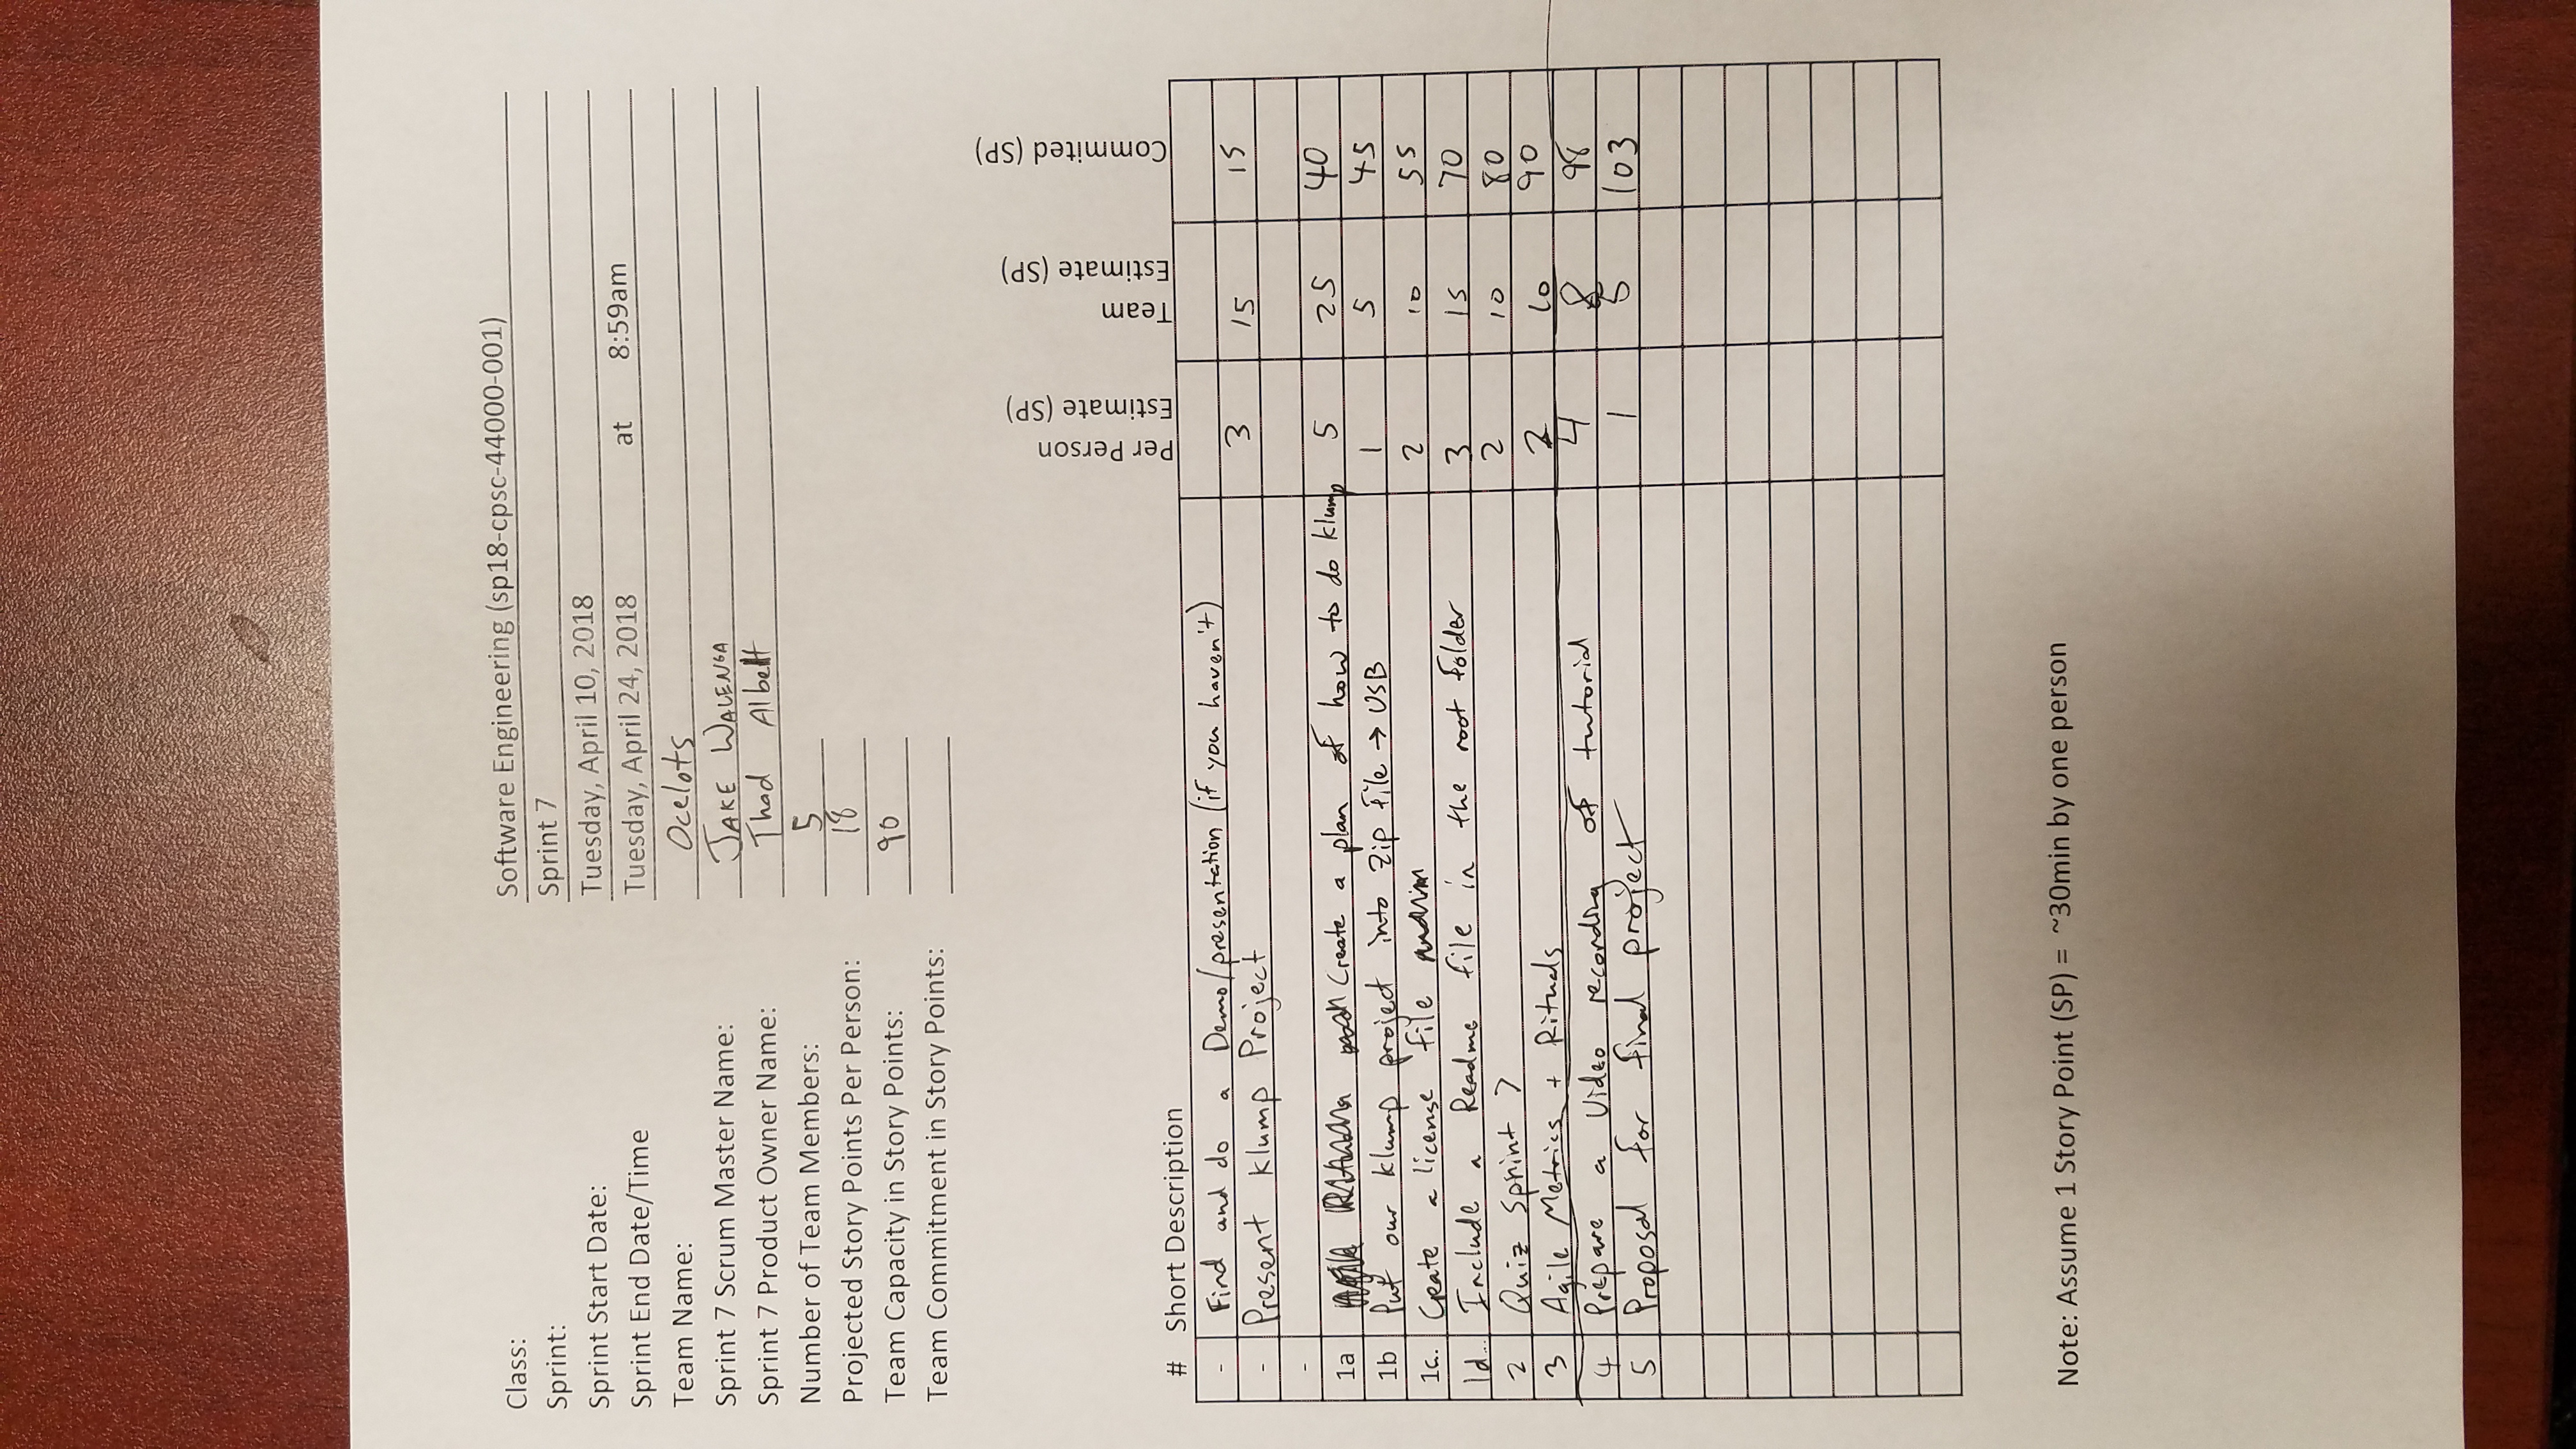 Class: Software Engineering (sp18-cpsc-44000-001)
Sprint: Sprint 7
Sprint Start Date: Tuesday, April 10, 2018
Sprint End Date/Time Tuesday, April 24, 2018 at 8:59am
Team Name: Ocelots
Sprint 7 Scrum Master Name: JAKE WALENGA
Sprint 7 Product Owner Name: Thad
Number of Team Members: 5
Projected Story Points Per Person: 18
Team Capacity in Story Points: 90
Team Commitment in Story Points:
# Short Description Per Person Estimate (SP) Team Estimate (SP) Commited (SP)
- Find and do a Demo/presentation (if you haven't)
- Present Klump Project 3 15 15
-
1a Create a plan of how to do klump 5 25 40
1b Put our klump project into Zip file → USB 1 5 45
1c. Create a license file 2 10 55
1d.. Include a Readme file in the root folder 3 15 70
2 Quiz Sprint 7 2 10 80
3 Agile Metrics + Rituals 2 10 90
4 Prepare a Video recording of tutorial 4 8 98
5 Proposal for final project 1 5 103
Note: Assume 1 Story Point (SP) = ~30min by one person